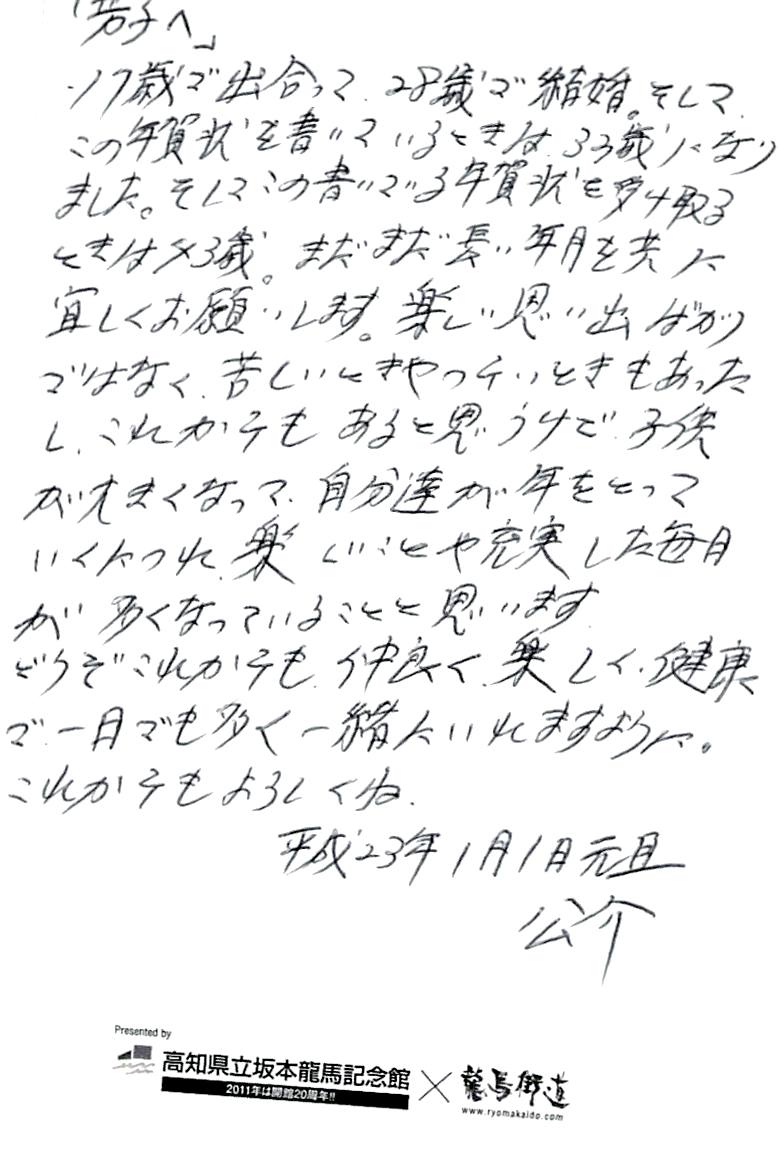 「芳子へ」
17歳で出合って、28歳で結婚。そして、
この年賀状を書いているときは、33歳になり
ました。そしてこの書いている年賀状を受け取る
ときは43歳。まだまだ長い年月を共に
宜しくお願いします。楽しい思い出ばかり
ではなく、苦しいときやつらいときもあった
し、これからもあると思うけど、子供
が大きくなって、自分達が年をとって
いくにつれ、楽しいことや充実した毎日
が多くなっていることと思います。
どうぞこれからも、仲良く、楽しく、健康
で、一日でも多く一緒にいれますように。
これからもよろしくね。
平成23年1月1日元旦
公介
Presented by
高知県立坂本龍馬記念館 × 龍馬街道
2011年は開館20周年!!
www.ryomakaido.com